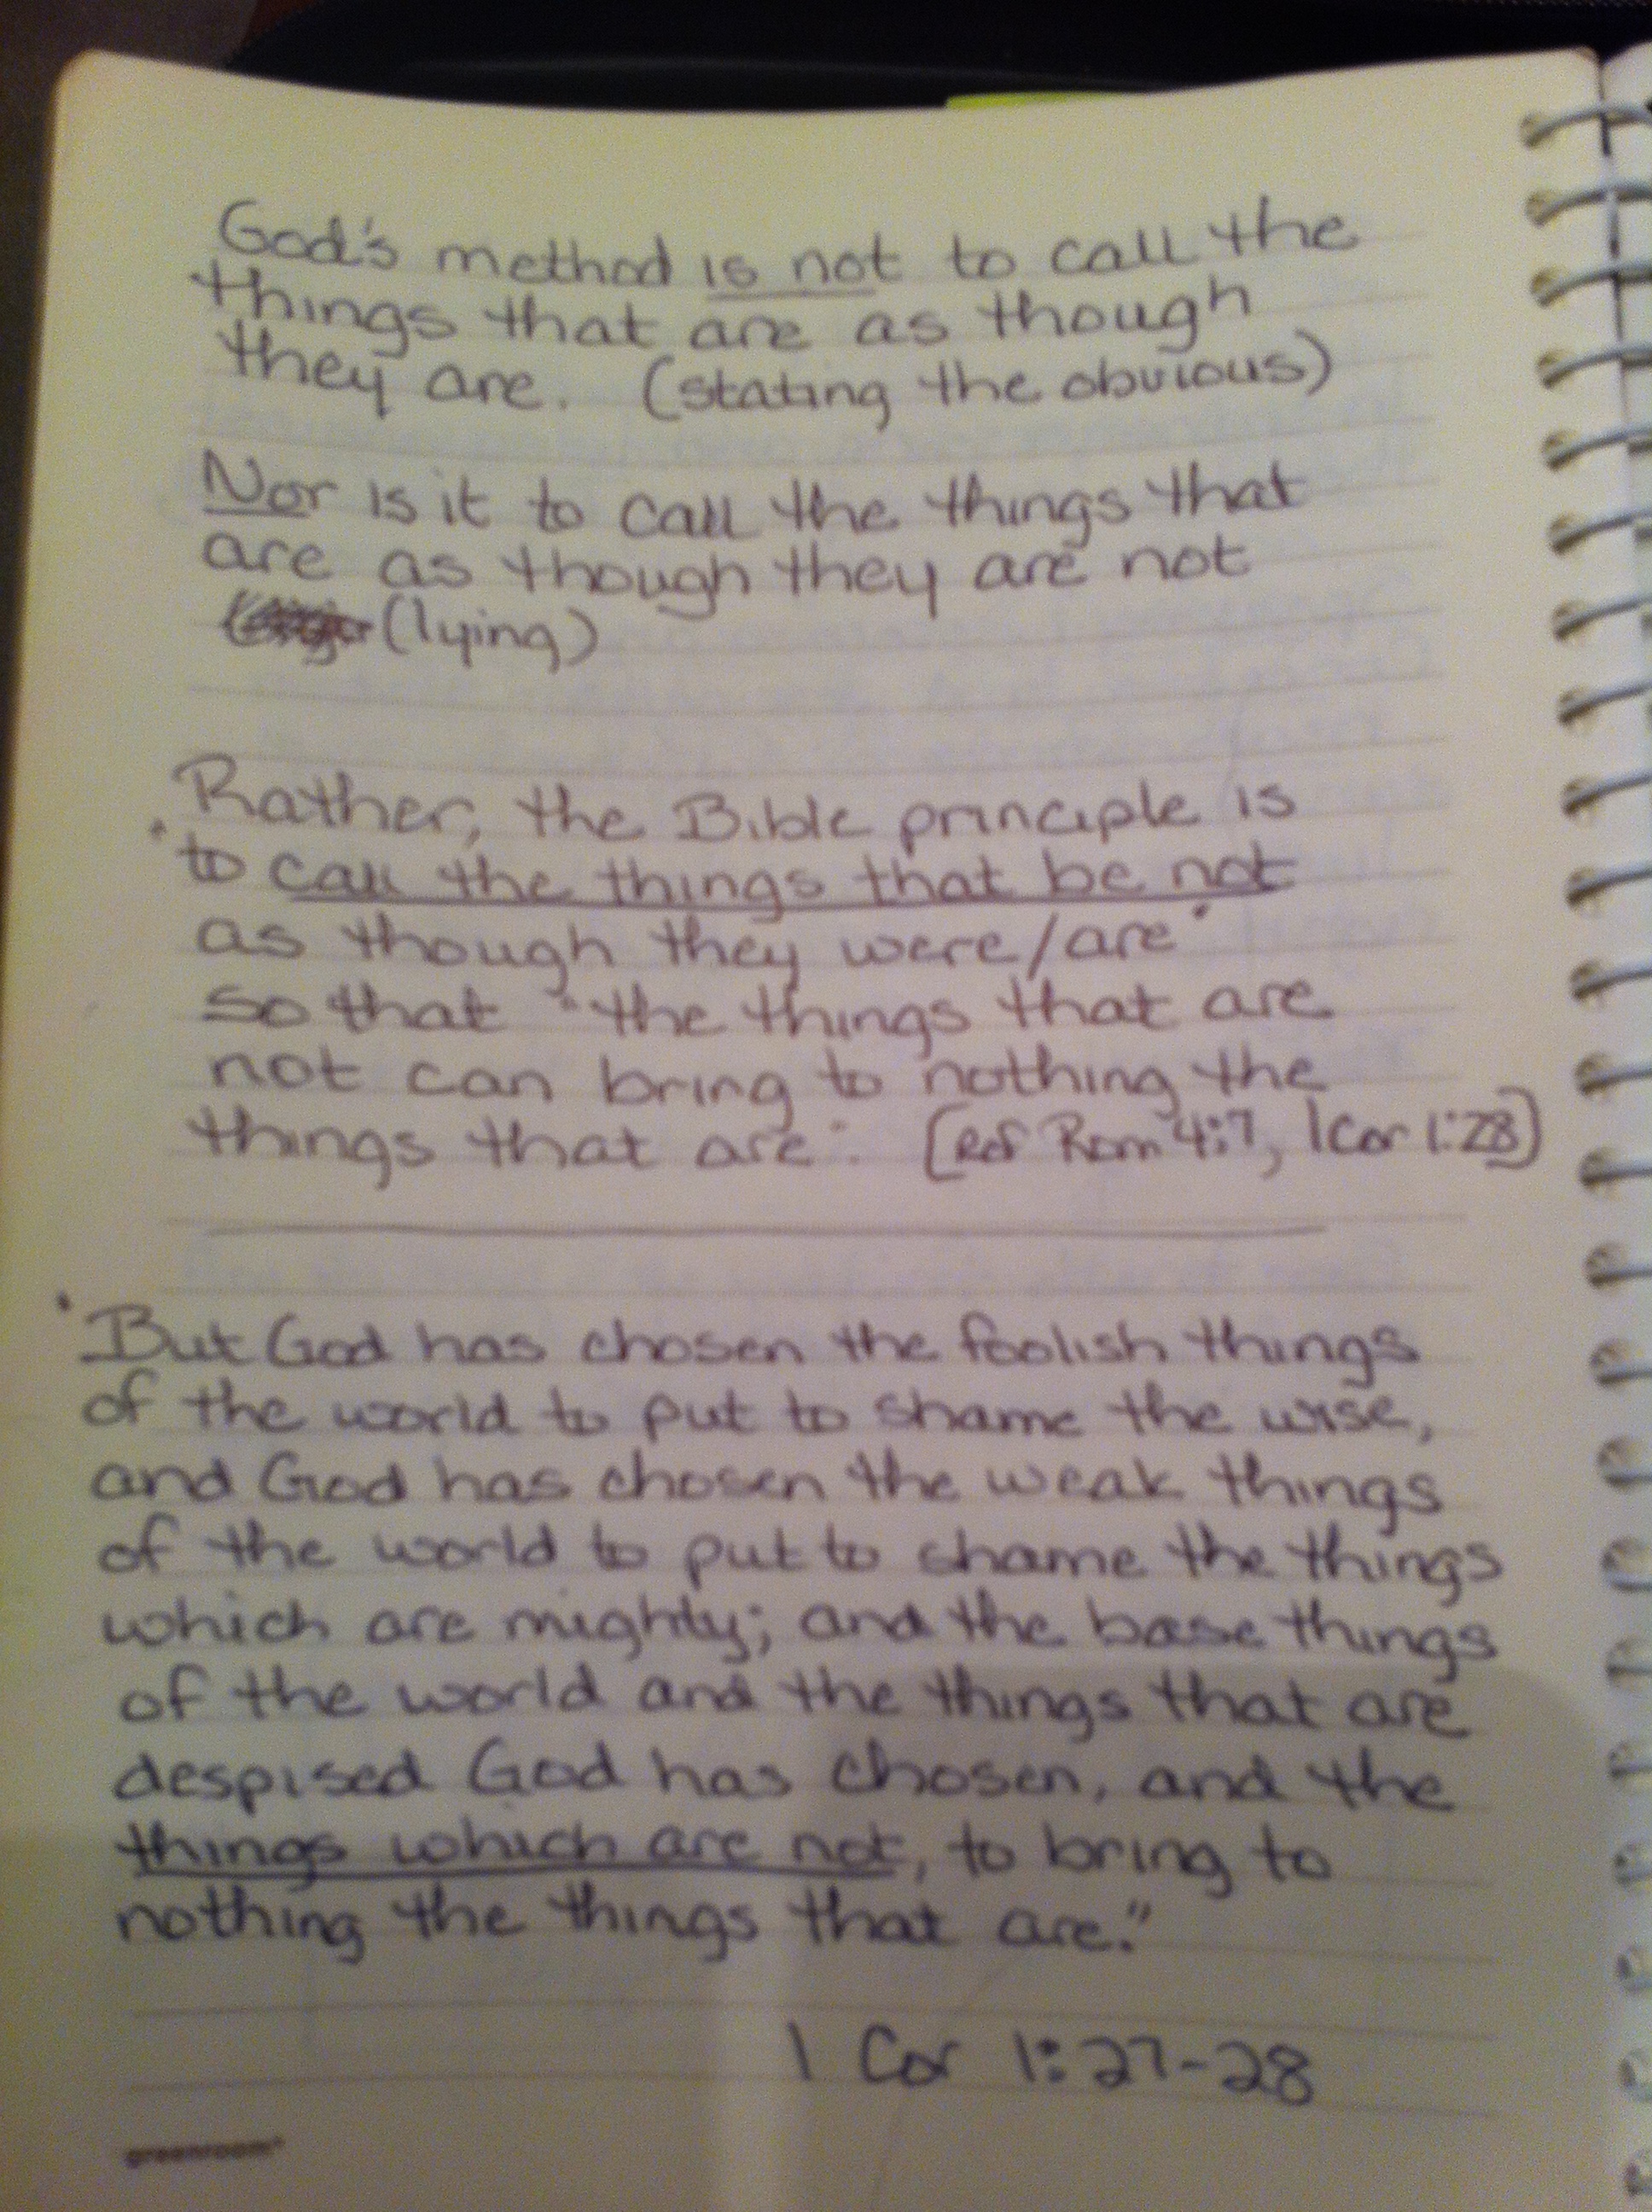 God's method is not to call the
things that are as though
they are. (stating the obvious)
Nor is it to call the things that
are as though they are not
(lying)
Rather, the Bible principle is
"to call the things that be not
as though they were/are"
so that "the things that are
not can bring to nothing the
things that are". [Ref Rom 4:7, 1Cor 1:28]
"But God has chosen the foolish things
of the world to put to shame the wise,
and God has chosen the weak things
of the world to put to shame the things
which are mighty; and the base things
of the world and the things that are
despised God has chosen, and the
things which are not, to bring to
nothing the things that are."
1 Cor 1:27-28
greenroom